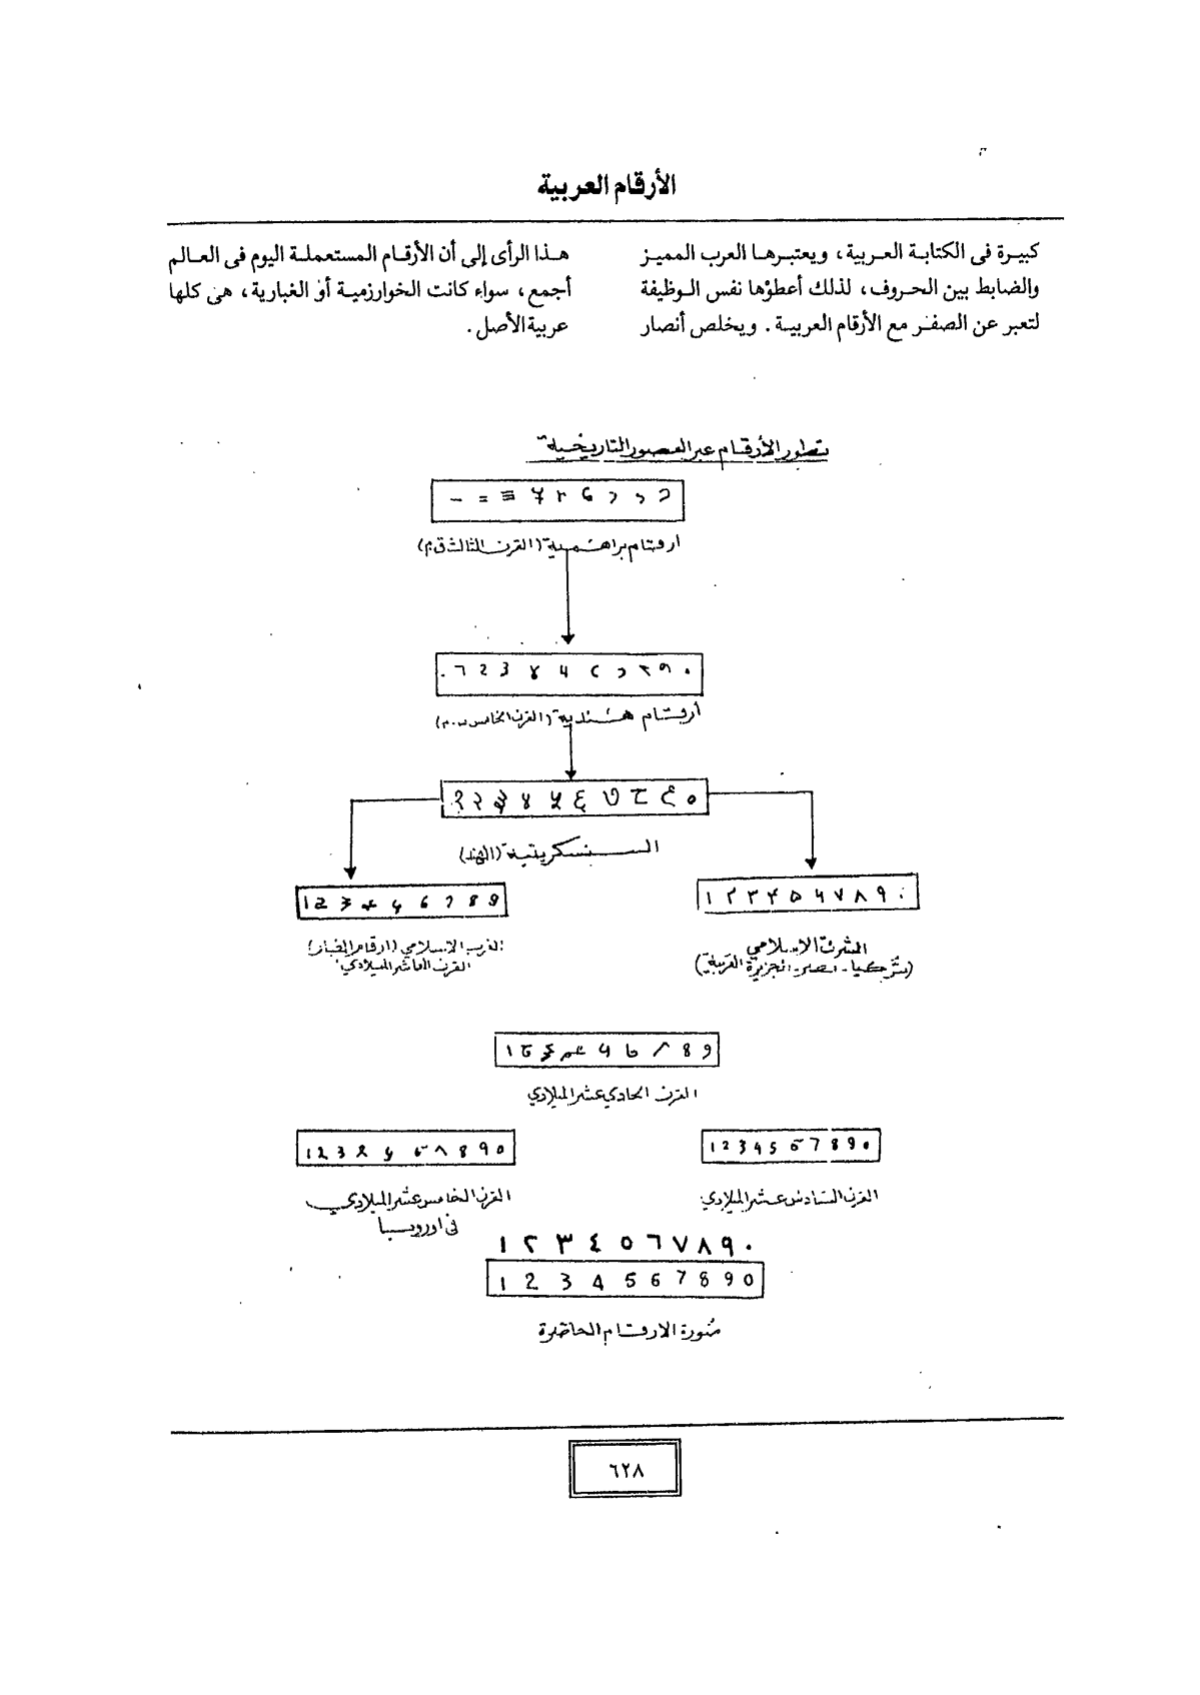 الأرقام العربية
كبيرة فى الكتابة العربية، ويعتبرها العرب المميز
والضابط بين الحروف، لذلك أعطوْها نفس الوظيفة
لتعبر عن الصفر مع الأرقام العربية. ويخلص أنصار
هذا الرأى إلى أن الأرقام المستعملة اليوم فى العالم
أجمع، سواء كانت الخوارزمية أو الغبارية، هى كلها
عربية الأصل.
تطور الأرقام عبر العصور التاريخية
ارقام براهمية (القرن الثالث ق.م)
أرقام هندية (القرن الخامس ب.م)
१ २ ३ ४ ५ ६ ७ ८ ९ ०
السنسكريتية (الهند)
1 2 3 4 5 6 7 8 9
الغرب الاسلامي (ارقام الغبار)
القرن العاشر الميلادي
١ ٢ ٣ ۴ ۵ ۶ ٧ ٨ ٩ ٠
الشرق الاسلامي
(تركيا - مصر - الجزيرة العربية)
القرن الحادي عشر الميلادي
1 2 3 4 5 6 7 8 9 0
القرن الخامس عشر الميلادي
في اوروبا
1 2 3 4 5 6 7 8 9 0
القرن السادس عشر الميلادي
١ ٢ ٣ ٤ ٥ ٦ ٧ ٨ ٩ ٠
1 2 3 4 5 6 7 8 9 0
صورة الارقام الحاضرة
٦٢٨